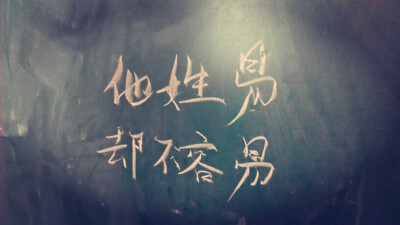 他姓易
却不容易